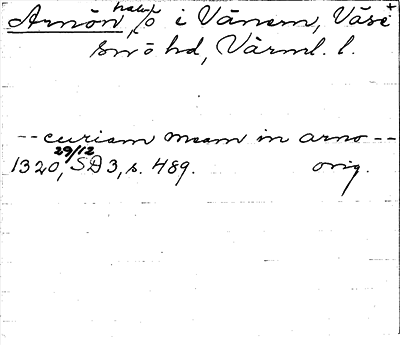 Arnön, halvö i Vänern, Väse +
smö hd, Värml. l.
-- curiam meam in arno --
1320 29/12, SD 3, s. 489. orig.